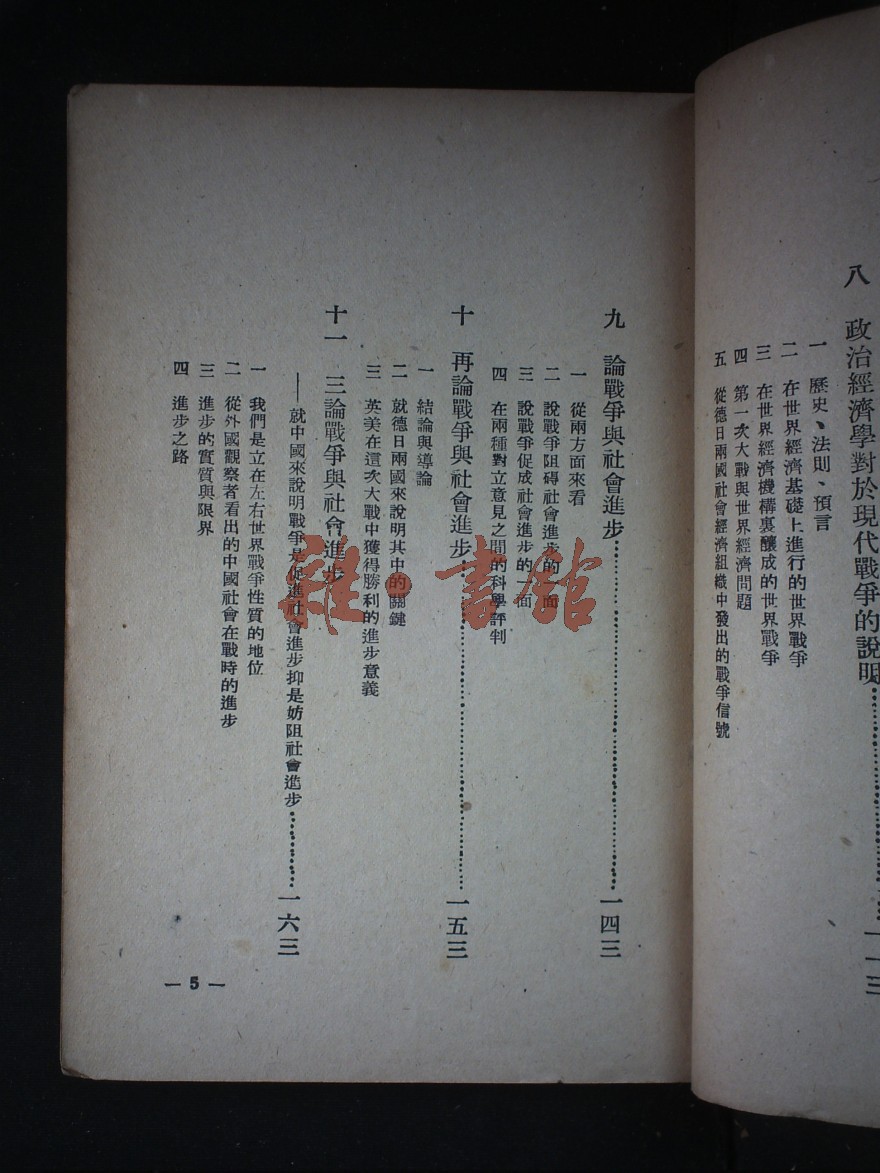 八　政治經濟學對於現代戰爭的說明……一一三
一　歷史、法則、預言
二　在世界經濟基礎上進行的世界戰爭
三　在世界經濟機構裏釀成的世界戰爭
四　第一次大戰與世界經濟問題
五　從德日兩國社會經濟組織中發出的戰爭信號
九　論戰爭與社會進步……一四三
一　從兩方面來看
二　說戰爭阻碍社會進步的一面
三　說戰爭促成社會進步的一面
四　在兩種對立意見之間的科學評判
十　再論戰爭與社會進步……一五三
一　結論與導論
二　就德日兩國來說明其中的關鍵
三　英美在這次大戰中獲得勝利的進步意義
十一　三論戰爭與社會進步
——就中國來說明戰爭是促進社會進步抑是妨阻社會進步……一六三
一　我們是立在左右世界戰爭性質的地位
二　從外國觀察者看出的中國社會在戰時的進步
三　進步的實質與限界
四　進步之路
— 5 —
雜·書館